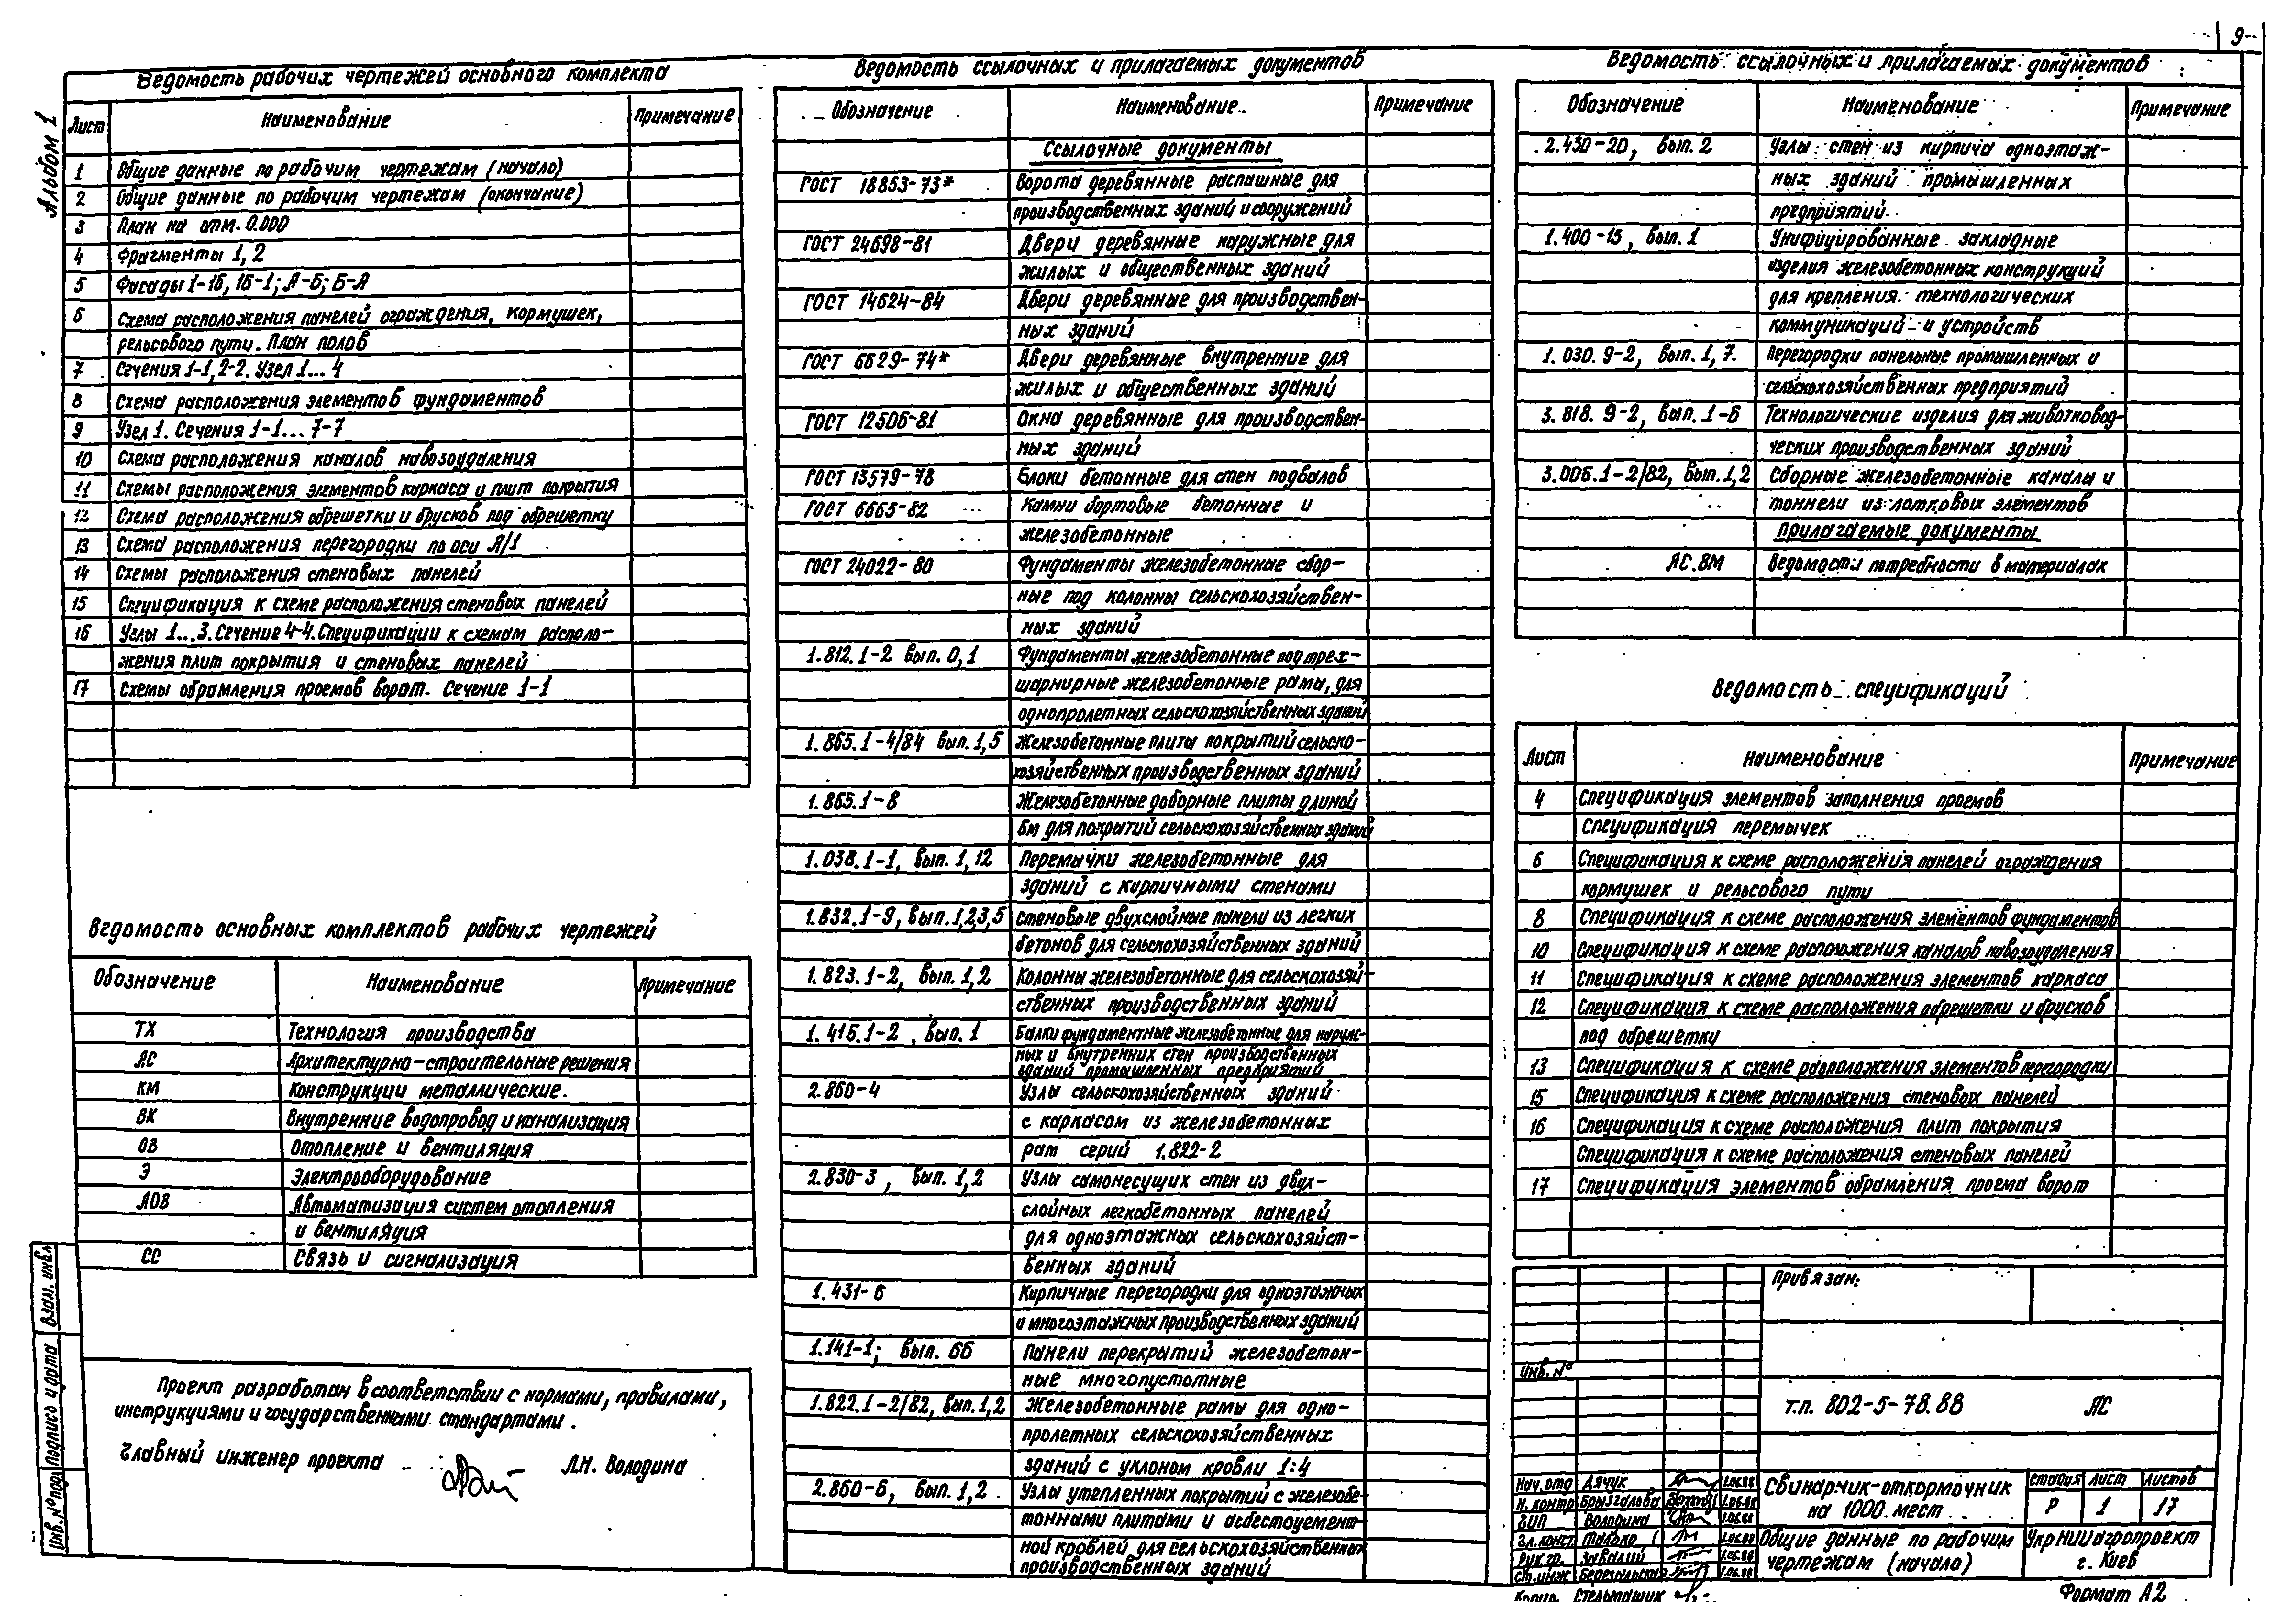 9
Альбом 1
Ведомость рабочих чертежей основного комплекта
Лист Наименование Примечание
1 Общие данные по рабочим чертежам (начало)
2 Общие данные по рабочим чертежам (окончание)
3 План на отм. 0.000
4 Фрагменты 1, 2
5 Фасады 1-16, 16-1; А-Б; Б-А
6 Схема расположения панелей ограждения, кормушек,
рельсового пути. План полов
7 Сечения 1-1, 2-2. Узел 1... 4
8 Схема расположения элементов фундаментов
9 Узел 1. Сечения 1-1... 7-7
10 Схема расположения каналов навозоудаления
11 Схемы расположения элементов каркаса и плит покрытия
12 Схема расположения обрешетки и брусков под обрешетку
13 Схема расположения перегородки по оси А/1
14 Схемы расположения стеновых панелей
15 Спецификация к схеме расположения стеновых панелей
16 Узлы 1...3. Сечение 4-4. Спецификации к схемам располо-
жения плит покрытия и стеновых панелей
17 Схемы обрамления проемов ворот. Сечение 1-1
Ведомость основных комплектов рабочих чертежей
Обозначение Наименование Примечание
ТХ Технология производства
АС Архитектурно-строительные решения
КМ Конструкции металлические.
ВК Внутренние водопровод и канализация
ОВ Отопление и вентиляция
Э Электрооборудование
АОВ Автоматизация систем отопления
и вентиляция
СС Связь и сигнализация
Проект разработан в соответствии с нормами, правилами,
инструкциями и государственными стандартами.
Главный инженер проекта Л.Н. Володина
Взам. инв.
Подпись и дата
Инв. № подл
Ведомость ссылочных и прилагаемых документов
Обозначение Наименование Примечание
Ссылочные документы
ГОСТ 18853-73* Ворота деревянные распашные для
производственных зданий и сооружений
ГОСТ 24698-81 Двери деревянные наружные для
жилых и общественных зданий
ГОСТ 14624-84 Двери деревянные для производствен-
ных зданий
ГОСТ 6629-74* Двери деревянные внутренние для
жилых и общественных зданий
ГОСТ 12506-81 Окна деревянные для производствен-
ных зданий
ГОСТ 13579-78 Блоки бетонные для стен подвалов
ГОСТ 6665-82 Камни бортовые бетонные и
железобетонные
ГОСТ 24022-80 Фундаменты железобетонные сбор-
ные под колонны сельскохозяйствен-
ных зданий
1.812.1-2 вып. 0,1 Фундаменты железобетонные под трех-
шарнирные железобетонные рамы, для
однопролетных сельскохозяйственных зданий
1.865.1-4/84 вып. 1,5 Железобетонные плиты покрытий сельско-
хозяйственных производственных зданий
1.865.1-8 Железобетонные доборные плиты длиной
6м для покрытий сельскохозяйственных зданий
1.038.1-1, вып. 1, 12 Перемычки железобетонные для
зданий с кирпичными стенами
1.832.1-9, вып.1,2,3,5 Стеновые двухслойные панели из легких
бетонов для сельскохозяйственных зданий
1.823.1-2, вып. 1,2 Колонны железобетонные для сельскохозяй-
ственных производственных зданий
1.415.1-2, вып. 1 Балки фундаментные железобетонные для наруж-
ных и внутренних стен производственных
зданий промышленных предприятий
2.860-4 Узлы сельскохозяйственных зданий
с каркасом из железобетонных
рам серий 1.822-2
2.830-3, вып. 1,2 Узлы самонесущих стен из двух-
слойных легкобетонных панелей
для одноэтажных сельскохозяйст-
венных зданий
1.431-6 Кирпичные перегородки для одноэтажных
и многоэтажных производственных зданий
1.141-1; вып. 66 Панели перекрытий железобетон-
ные многопустотные
1.822.1-2/82, вып.1,2 Железобетонные рамы для одно-
пролетных сельскохозяйственных
зданий с уклоном кровли 1:4
2.860-6, вып. 1,2 Узлы утепленных покрытий с железобе-
тонными плитами и асбестоцемент-
ной кровлей для сельскохозяйственных
производственных зданий
Ведомость ссылочных и прилагаемых документов
Обозначение Наименование Примечание
2.430-20, вып. 2 Узлы стен из кирпича одноэтаж-
ных зданий промышленных
предприятий.
1.400-15, вып. 1 Унифицированные закладные
изделия железобетонных конструкций
для крепления технологических
коммуникаций и устройств
1.030.9-2, вып. 1, 7. Перегородки панельные промышленных и
сельскохозяйственных предприятий
3.818.9-2, вып. 1-6 Технологические изделия для животновод-
ческих производственных зданий
3.006.1-2/82, вып.1,2 Сборные железобетонные каналы и
тоннели из лотковых элементов
Прилагаемые документы
АС.ВМ Ведомости потребности в материалах
Ведомость спецификаций
Лист Наименование Примечание
4 Спецификация элементов заполнения проемов
Спецификация перемычек
6 Спецификация к схеме расположения панелей ограждения
кормушек и рельсового пути
8 Спецификация к схеме расположения элементов фундаментов
10 Спецификация к схеме расположения каналов навозоудаления
11 Спецификация к схеме расположения элементов каркаса
12 Спецификация к схеме расположения обрешетки и брусков
под обрешетку
13 Спецификация к схеме расположения элементов перегородки
15 Спецификация к схеме расположения стеновых панелей
16 Спецификация к схеме расположения плит покрытия
Спецификация к схеме расположения стеновых панелей
17 Спецификация элементов обрамления проема ворот
Привязан:
Инв. №
т.п. 802-5-78.88 АС
Нач. отд Дячук 1.06.88
Н. контр Брызгалова 1.06.88
ГИП Володина 1.06.88
Гл. конст. 1.06.88
Рук. гр. Завалий 1.06.88
Ст. инж 1.06.88
Свинарник-откормочник
на 1000 мест
Стадия Лист Листов
Р 1 17
Общие данные по рабочим
чертежам (начало)
УкрНИИагропроект
г. Киев
Копир. Стельмащик
Формат А2